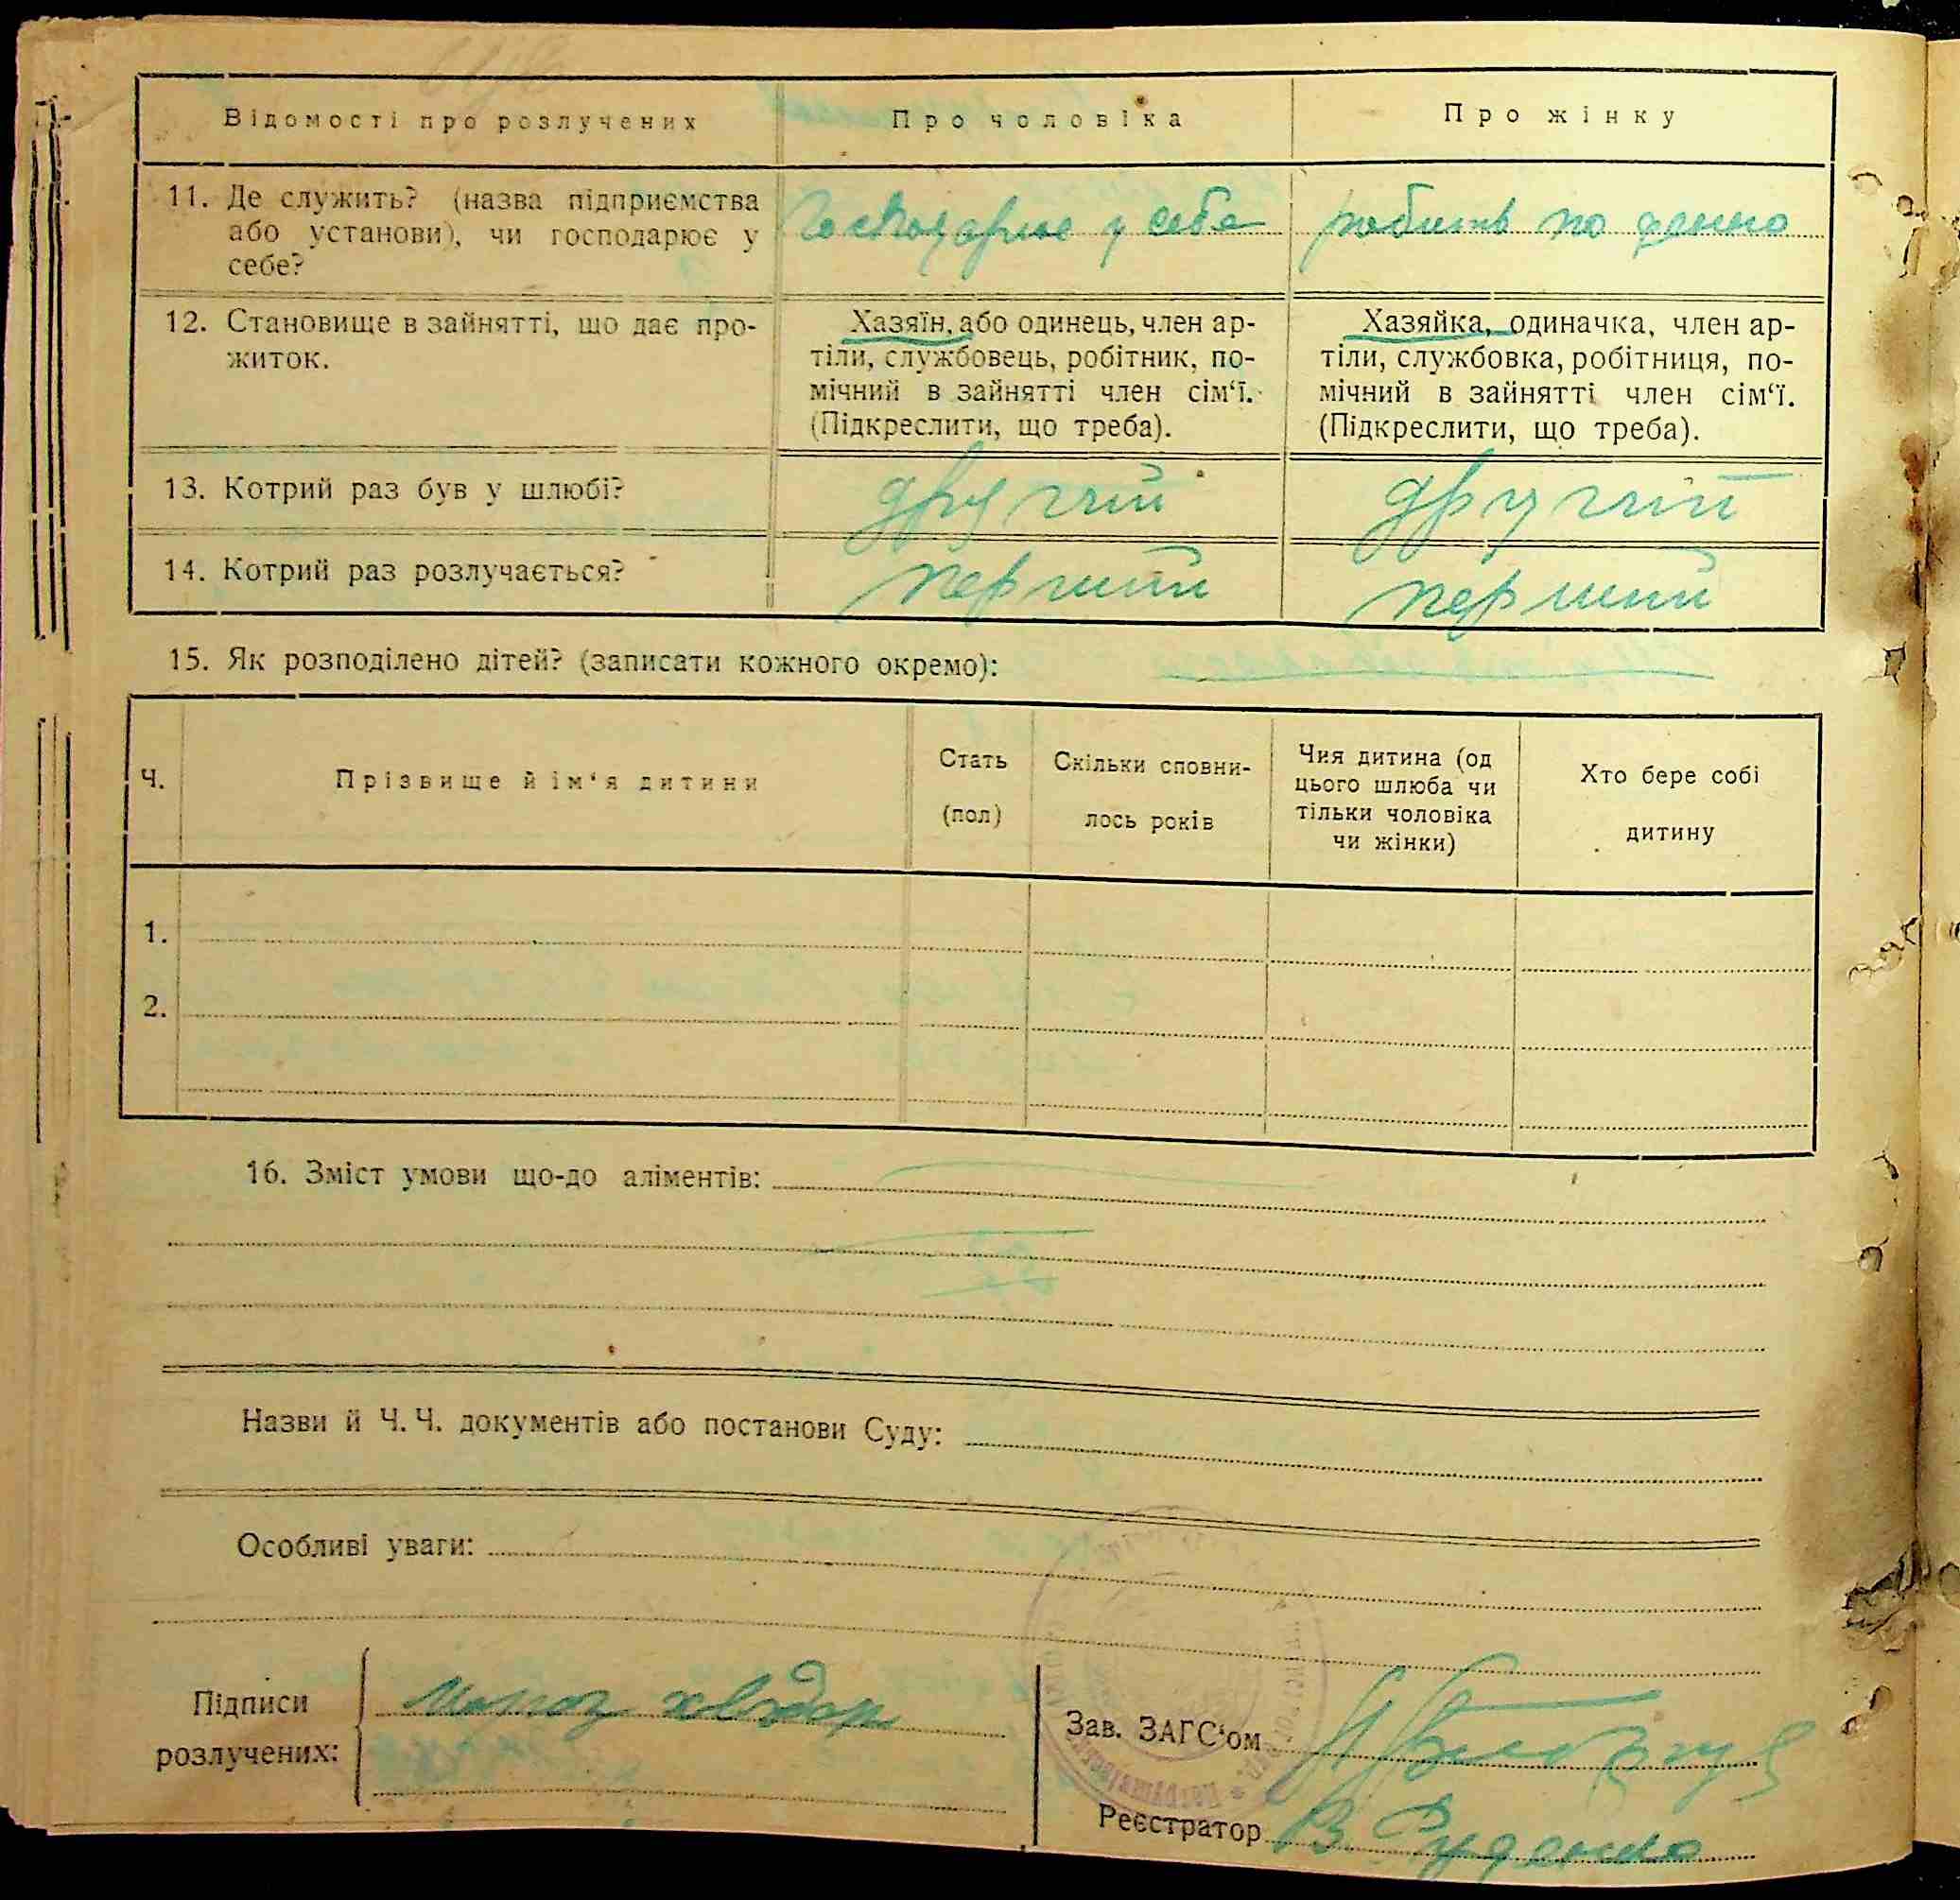 Відомості про розлучених
Про чоловіка
Про жінку
11. Де служить? (назва підприємства
або установи), чи господарює у
себе?
Господарює у себе
робить по денно
12. Становище в зайнятті, що дає про-
житок.
Хазяїн, або одинець, член ар-
тіли, службовець, робітник, по-
мічний в зайнятті член сім‘ї.
(Підкреслити, що треба).
Хазяйка, одиначка, член ар-
тіли, службовка, робітниця, по-
мічний в зайнятті член сім‘ї.
(Підкреслити, що треба).
13. Котрий раз був у шлюбі?
другий
другий
14. Котрий раз розлучається?
перший
перший
15. Як розподілено дітей? (записати кожного окремо):
Ч.
Прізвище й ім‘я дитини
Стать
(пол)
Скільки сповни-
лось років
Чия дитина (од
цього шлюба чи
тільки чоловіка
чи жінки)
Хто бере собі
дитину
1.
2.
16. Зміст умови що-до аліментів:
Назви й Ч. Ч. документів або постанови Суду:
Особливі уваги:
Підписи
розлучених:
Зав. ЗАГС‘ом
Реєстратор В. Руденко